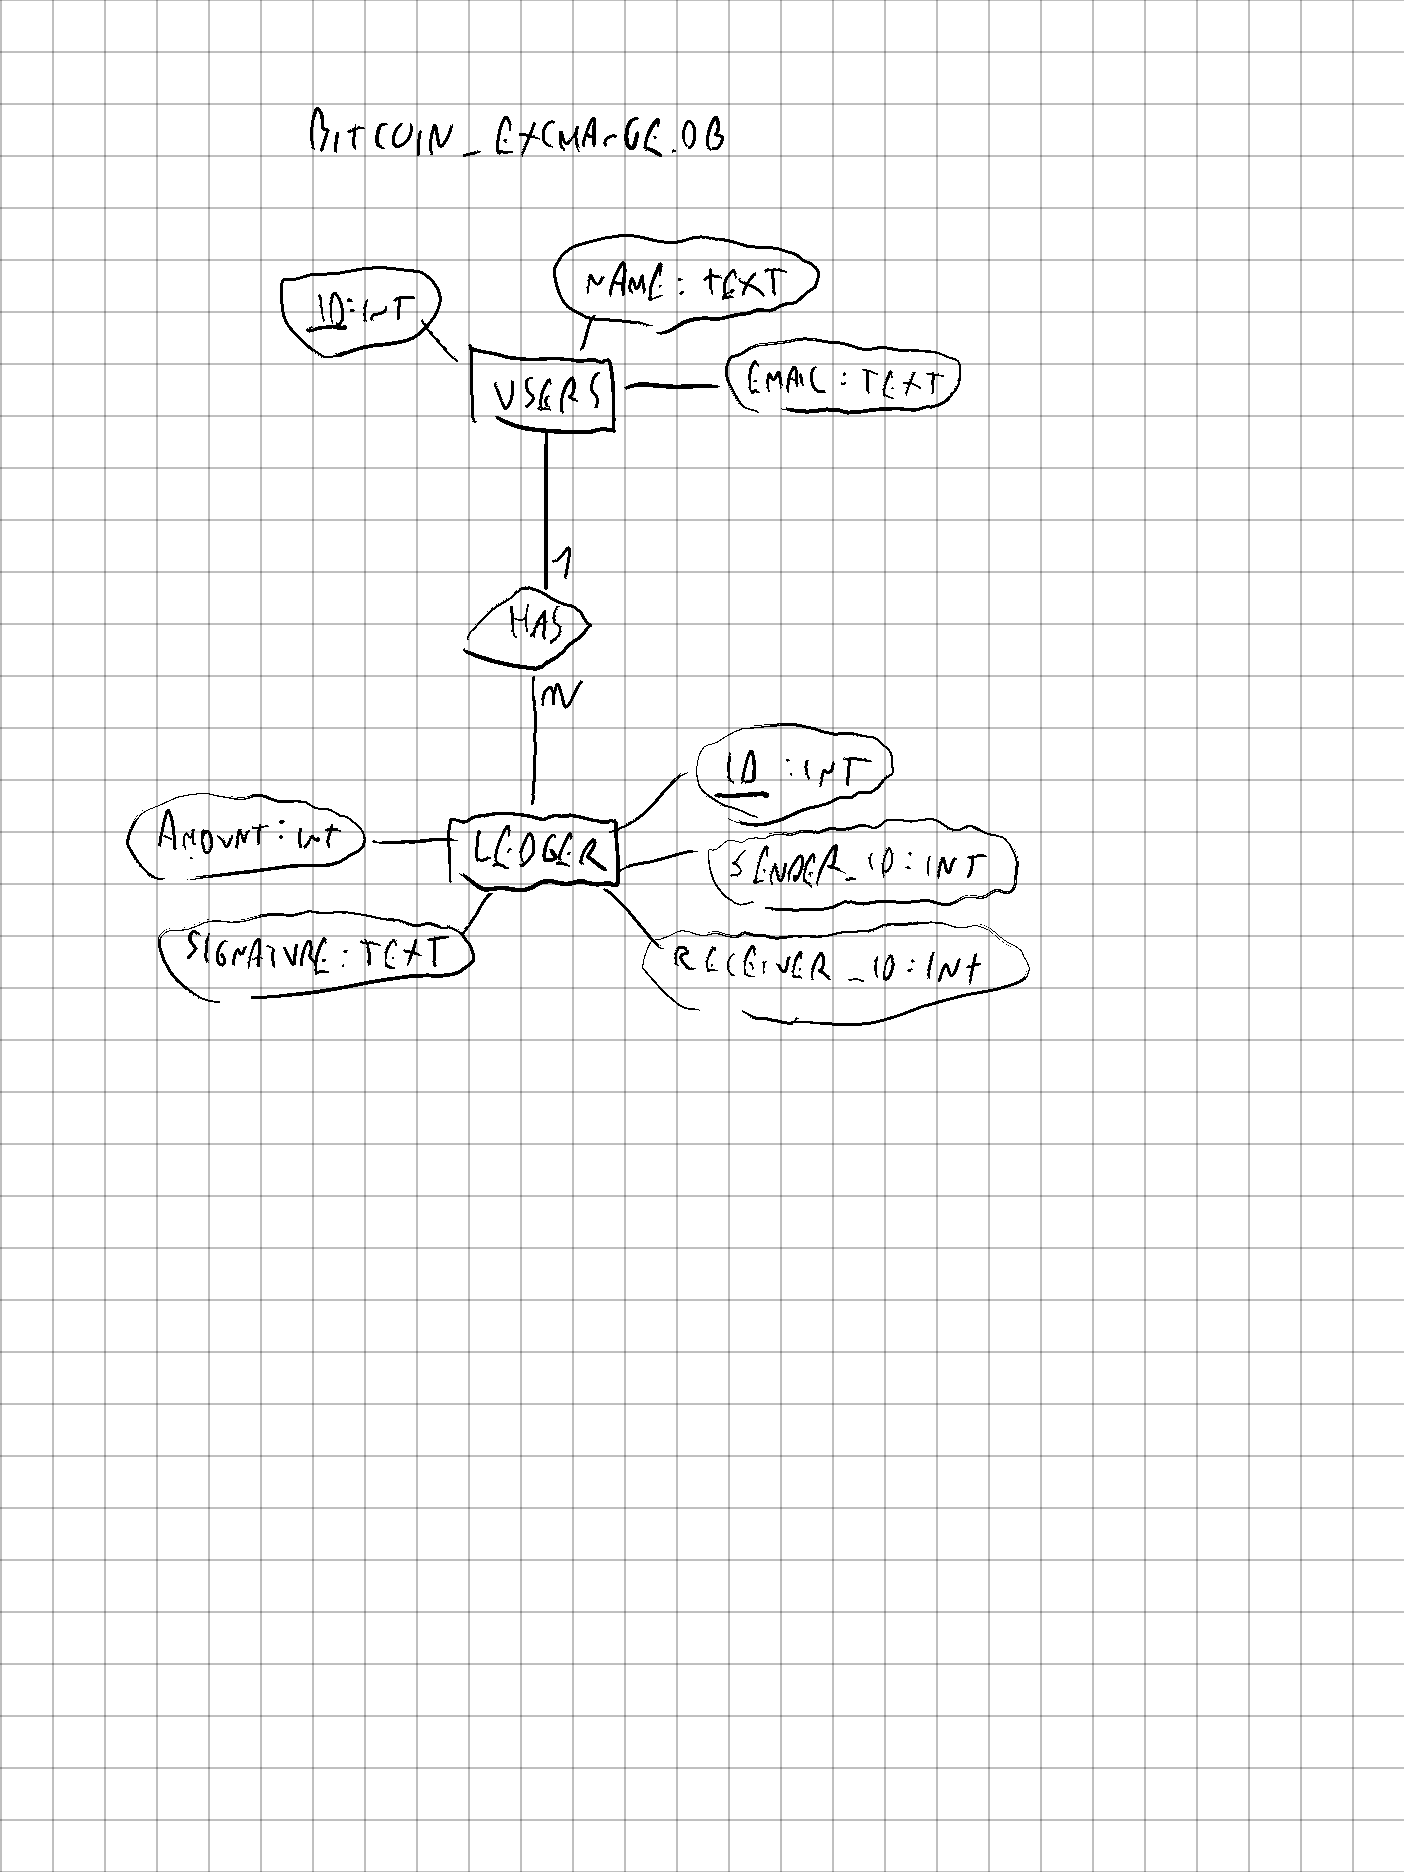 BITCOIN_EXCHANGE.DB
NAME: TEXT
ID:INT
EMAIL: TEXT
USERS
1
HAS
N
ID :INT
AMOUNT: int
LEDGER
SENDER_ID: INT
SIGNATURE: TEXT
RECEIVER_ID: INT